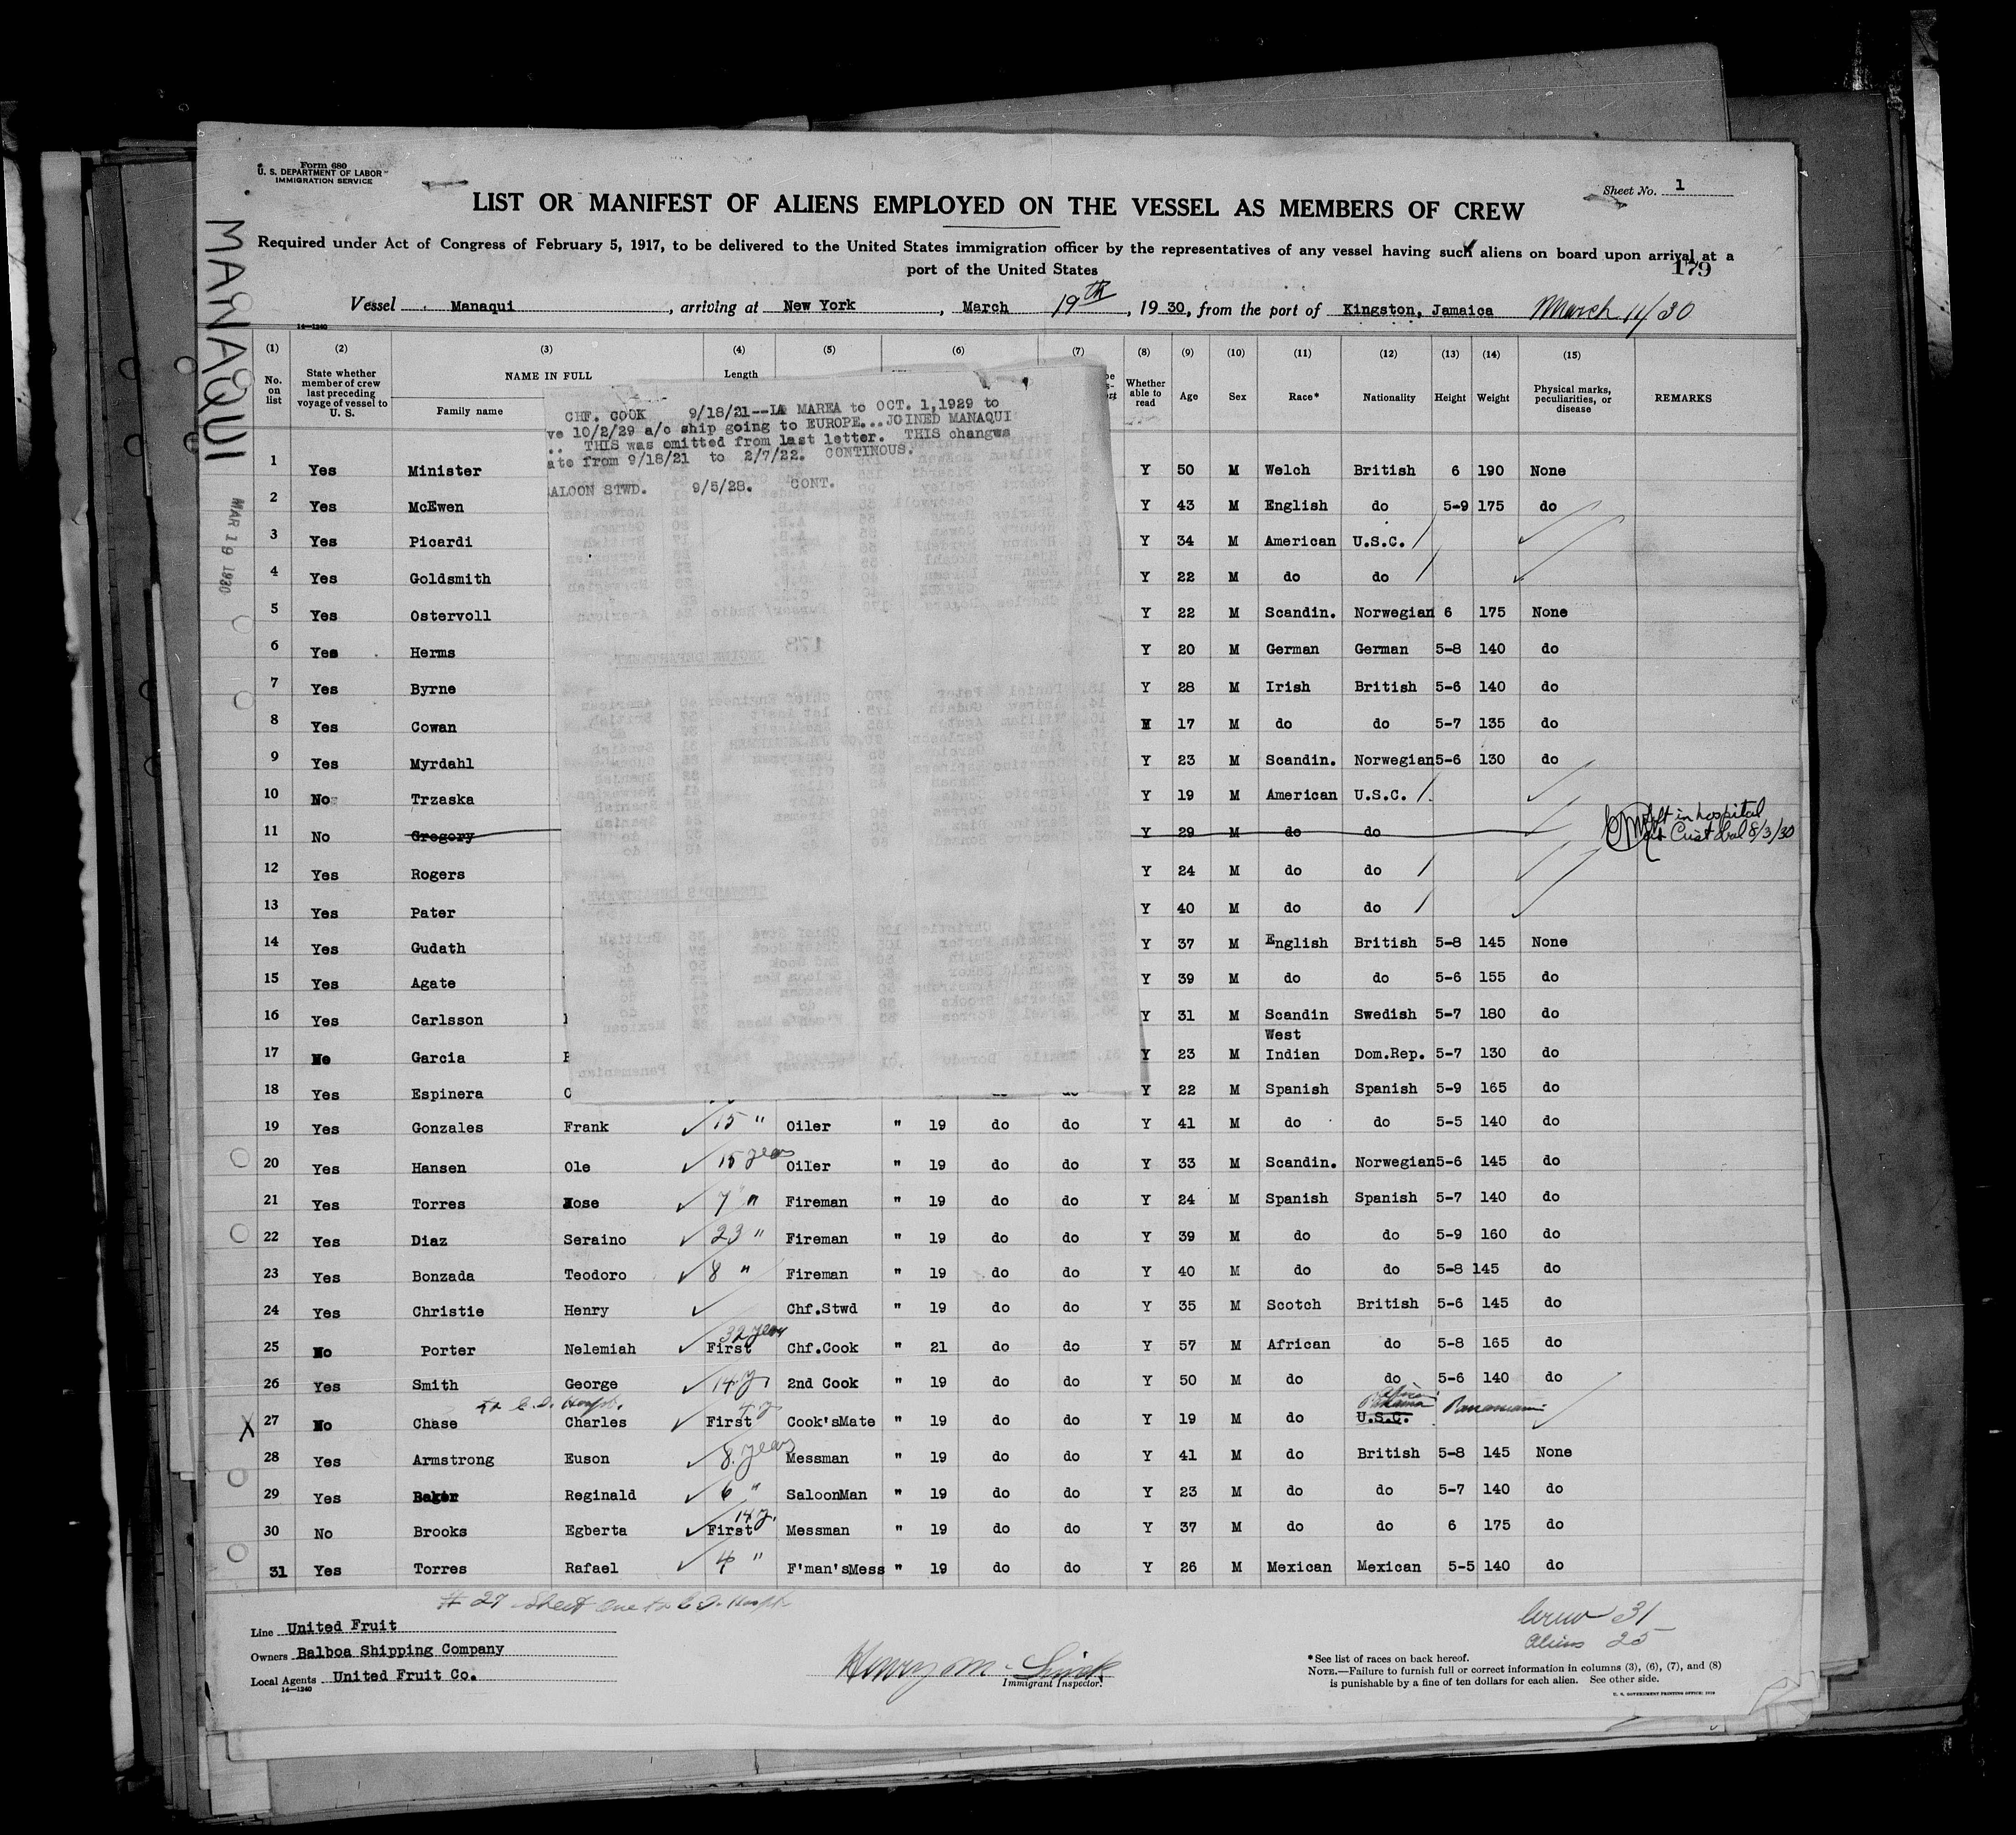 Form 680
U. S. DEPARTMENT OF LABOR
IMMIGRATION SERVICE
Sheet No. 1
LIST OR MANIFEST OF ALIENS EMPLOYED ON THE VESSEL AS MEMBERS OF CREW
Required under Act of Congress of February 5, 1917, to be delivered to the United States immigration officer by the representatives of any vessel having such aliens on board upon arrival at a
port of the United States
179
Vessel Manaqui, arriving at New York, March 19th, 1930, from the port of Kingston, Jamaica March 11/30
MANAQUI
MAR 19 1930
14—1240
(1) (2) (3) (4) (5) (6) (7) (8) (9) (10) (11) (12) (13) (14) (15)
No. on list
State whether member of crew last preceding voyage of vessel to U. S.
NAME IN FULL
Family name
Length
Whether able to read
Age Sex Race* Nationality Height Weight
Physical marks, peculiarities, or disease
REMARKS
CHF. COOK 9/18/21--LA MAREA to OCT. 1,1929 to
ve 10/2/29 a/c ship going to EUROPE...JOINED MANAQUI
.. THIS was omitted from last letter. THIS changes
ate from 9/18/21 to 2/7/22. CONTINOUS.
ALOON STWD. 9/5/28. CONT.
1 Yes Minister Y 50 M Welch British 6 190 None
2 Yes McEwen Y 43 M English do 5-9 175 do
3 Yes Picardi Y 34 M American U.S.C. /
4 Yes Goldsmith Y 22 M do do /
5 Yes Ostervoll Y 22 M Scandin. Norwegian 6 175 None
6 Yes Herms Y 20 M German German 5-8 140 do
7 Yes Byrne Y 28 M Irish British 5-6 140 do
8 Yes Cowan 17 M do do 5-7 135 do
9 Yes Myrdahl Y 23 M Scandin. Norwegian 5-6 130 do
10 No Trzaska Y 19 M American U.S.C. /
11 No Gregory Y 29 M do do left in hospital
at Cristobal 8/3/30
12 Yes Rogers Y 24 M do do /
13 Yes Pater Y 40 M do do /
14 Yes Gudath Y 37 M English British 5-8 145 None
15 Yes Agate Y 39 M do do 5-6 155 do
16 Yes Carlsson Y 31 M Scandin Swedish 5-7 180 do
17 No Garcia Y 23 M West Indian Dom.Rep. 5-7 130 do
18 Yes Espinera Y 22 M Spanish Spanish 5-9 165 do
19 Yes Gonzales Frank 15 " Oiler " 19 do do Y 41 M do do 5-5 140 do
20 Yes Hansen Ole 15 years Oiler " 19 do do Y 33 M Scandin. Norwegian 5-6 145 do
21 Yes Torres Jose 7 " Fireman " 19 do do Y 24 M Spanish Spanish 5-7 140 do
22 Yes Diaz Seraino 23 " Fireman " 19 do do Y 39 M do do 5-9 160 do
23 Yes Bonzada Teodoro 8 " Fireman " 19 do do Y 40 M do do 5-8 145 do
24 Yes Christie Henry Chf.Stwd " 19 do do Y 35 M Scotch British 5-6 145 do
25 No Porter Nelemiah 32 years First Chf.Cook " 21 do do Y 57 M African do 5-8 165 do
26 Yes Smith George 14 y. 2nd Cook " 19 do do Y 50 M do do 5-6 140 do
X 27 No Chase Charles First 4 y Cook'sMate " 19 do do Y 19 M do U.S.C. Panama
28 Yes Armstrong Euson 8 years Messman " 19 do do Y 41 M do British 5-8 145 None
29 Yes Baker Reginald 6 " SaloonMan " 19 do do Y 23 M do do 5-7 140 do
30 No Brooks Egberta First 14 y. Messman " 19 do do Y 37 M do do 6 175 do
31 Yes Torres Rafael 4 " F'man'sMess " 19 do do Y 26 M Mexican Mexican 5-5 140 do
Line United Fruit
Owners Balboa Shipping Company
Local Agents United Fruit Co.
14—1240
Immigrant Inspector.
Crew 31
Aliens 25
*See list of races on back hereof.
NOTE.—Failure to furnish full or correct information in columns (3), (6), (7), and (8)
is punishable by a fine of ten dollars for each alien. See other side.